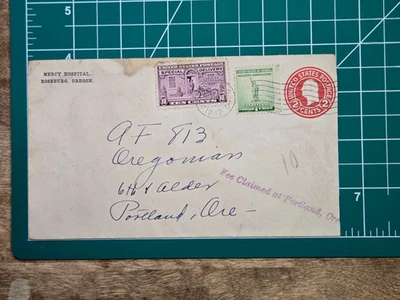 5
6
7
MERCY HOSPITAL
ROSEBURG, OREGON.
UNITED STATES POSTAGE
SPECIAL DELIVERY
TEN CENTS
UNITED STATES POSTAGE
2 CENTS 2
AF 813
Oregonian
6th & Alder
Portland, Ore-
10
Fee Claimed at Portland, Ore